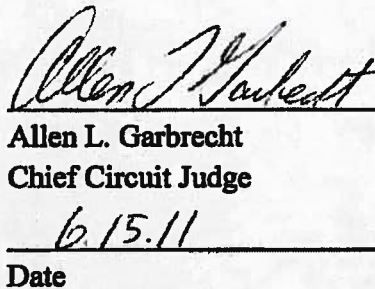 Allen L. Garbrecht
Allen L. Garbrecht
Chief Circuit Judge
6.15.11
Date